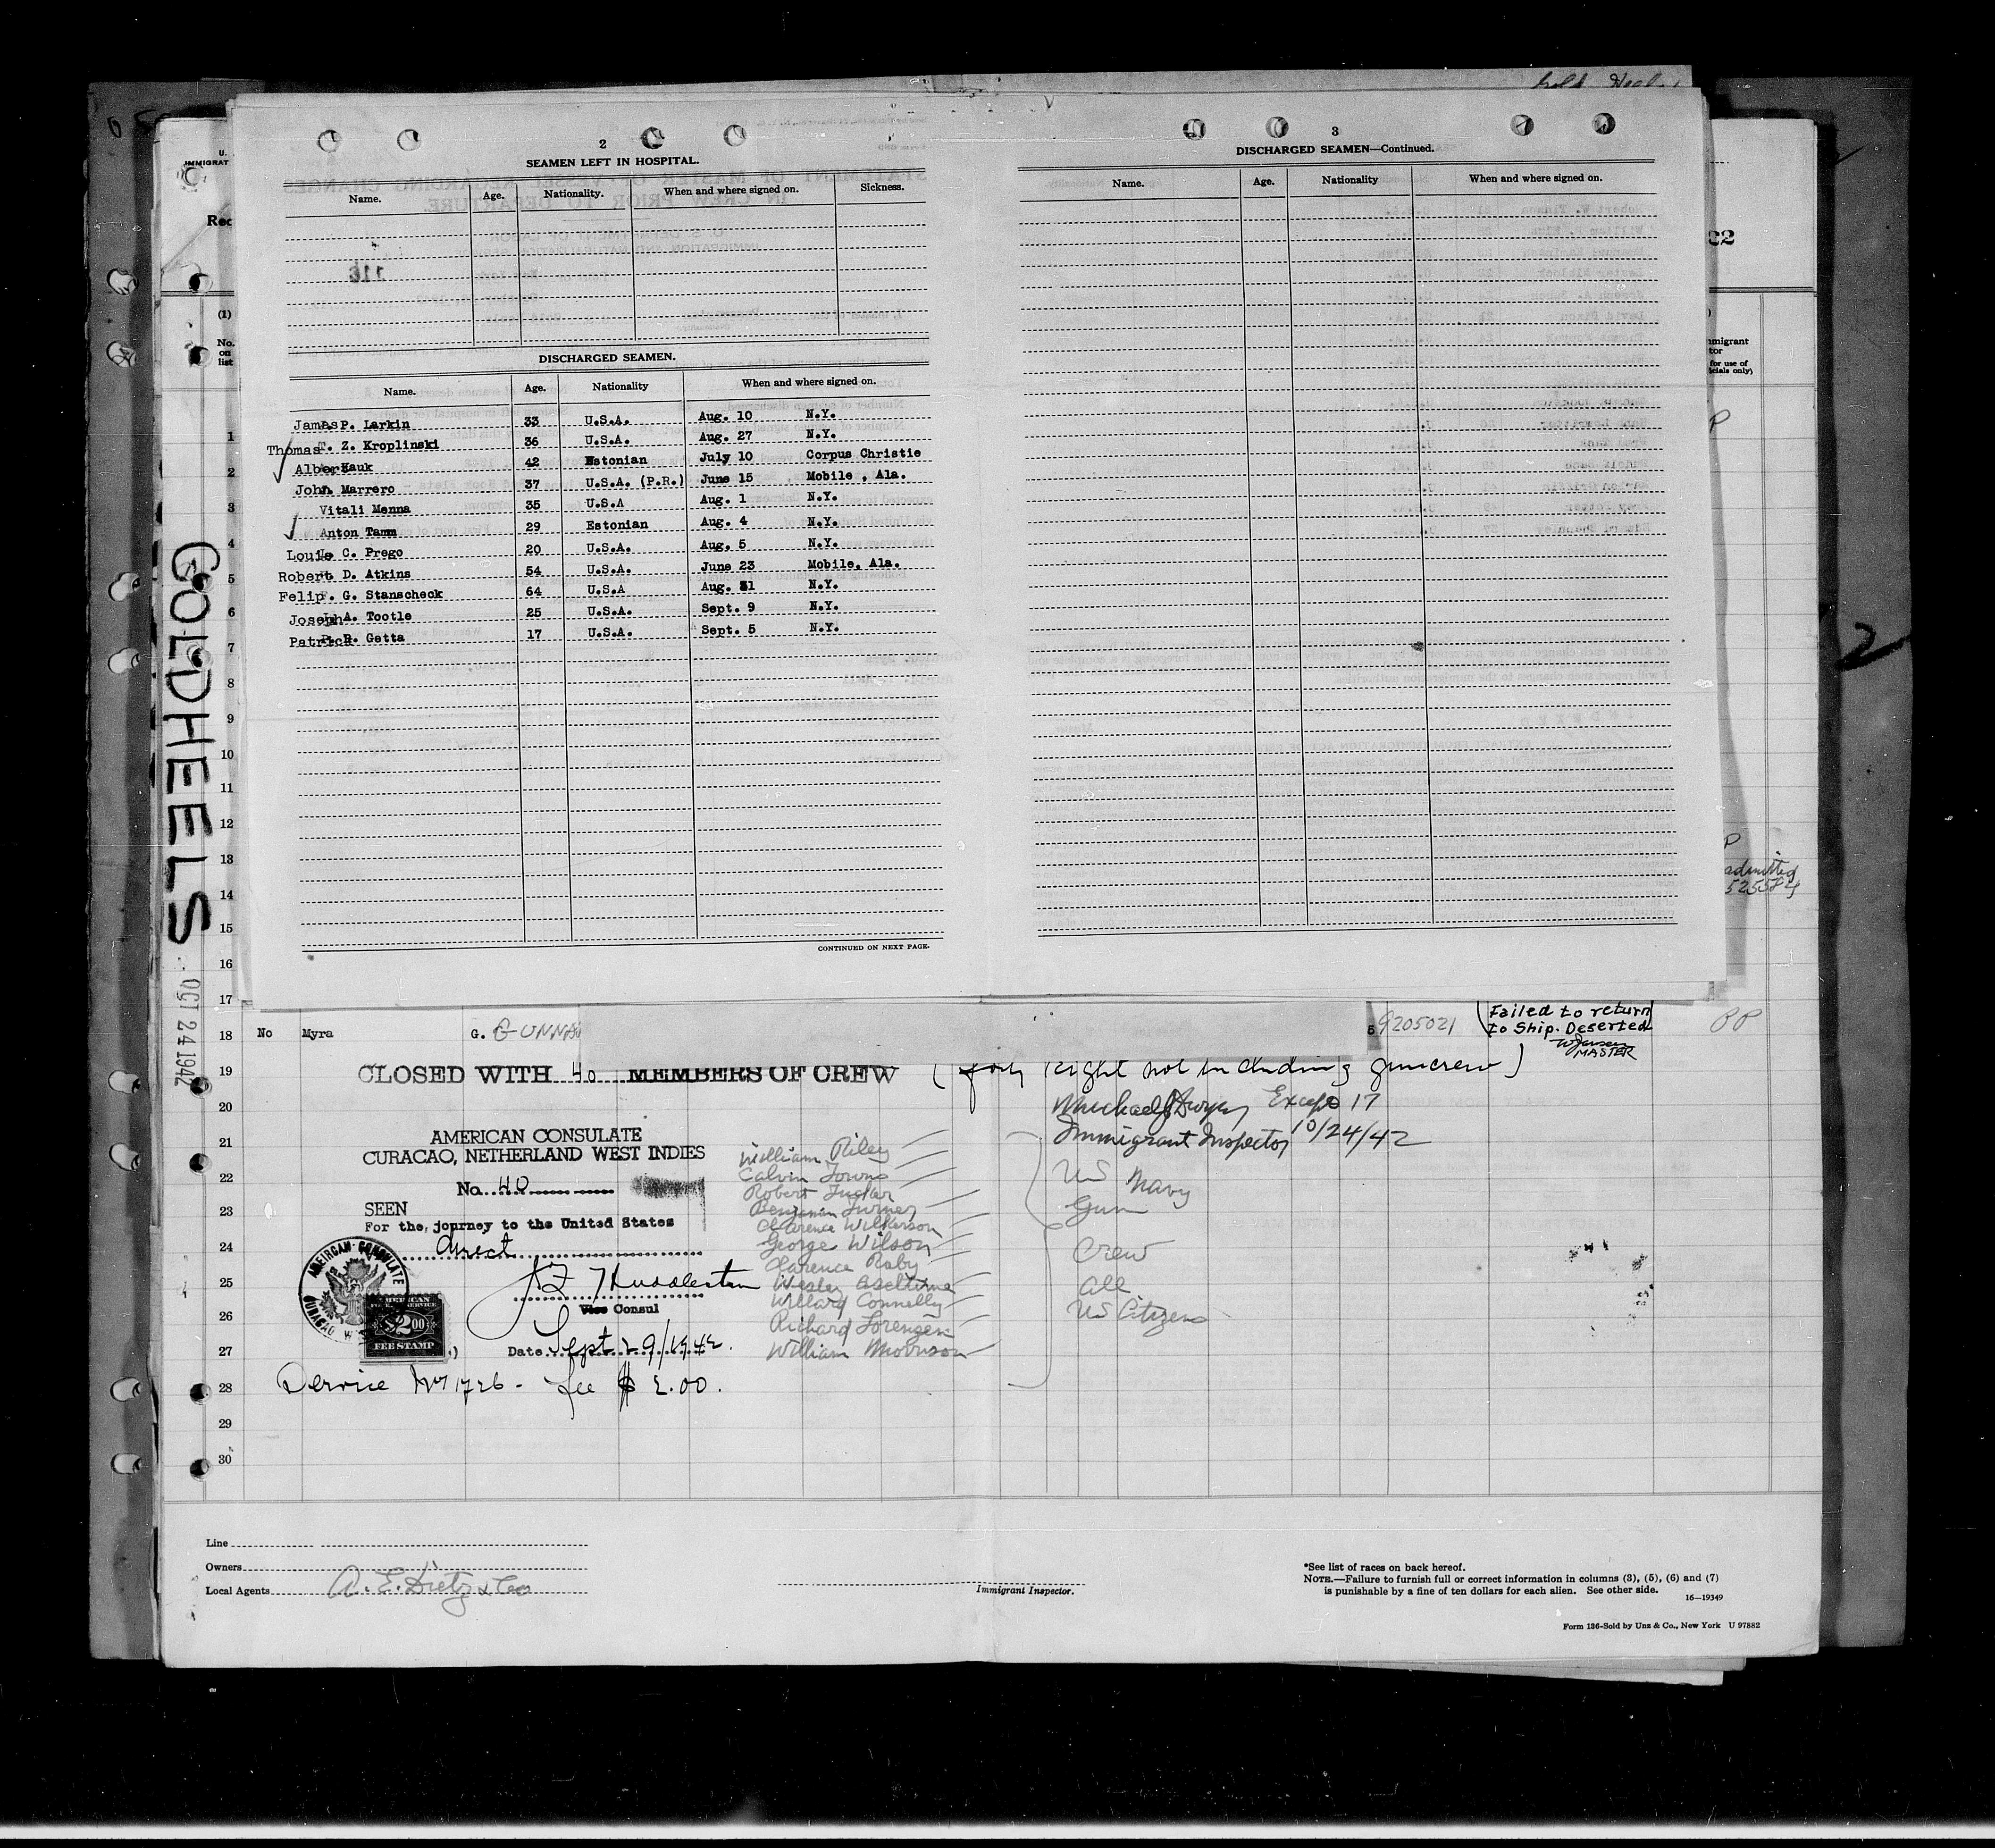 2
SEAMEN LEFT IN HOSPITAL.
Name. Age. Nationality. When and where signed on. Sickness.
DISCHARGED SEAMEN.
Name. Age. Nationality When and where signed on.
James P. Larkin 33 U.S.A. Aug. 10 N.Y.
Thomas Z. Kroplinski 36 U.S.A. Aug. 27 N.Y.
Albert Hauk 42 Estonian July 10 Corpus Christie
John Marrero 37 U.S.A. (P.R.) June 15 Mobile, Ala.
Vitali Menna 35 U.S.A Aug. 1 N.Y.
Anton Tamm 29 Estonian Aug. 4 N.Y.
Louis C. Prego 20 U.S.A. Aug. 5 N.Y.
Robert D. Atkins 54 U.S.A. June 23 Mobile, Ala.
Felip. G. Stanscheck 64 U.S.A Aug. 31 N.Y.
Joseph A. Tootle 25 U.S.A. Sept. 9 N.Y.
Patrick R. Getta 17 U.S.A. Sept. 5 N.Y.
CONTINUED ON NEXT PAGE.
3
DISCHARGED SEAMEN—Continued.
Name. Age. Nationality When and where signed on.
U.
IMMIGRAT
Rec
(1)
No.
on
list
22
mmigrant
tor
for use of
icials only)
P
2
P
admitted
GOLDHEELS
OCT 24 1942
1
2
3
4
5
6
7
8
9
10
11
12
13
14
15
16
17
18 No Myra G. GUNNA 5 9205021 (Failed to return PP
to Ship. Deserted
MASTER
19 CLOSED WITH 40 MEMBERS OF CREW (forty eight not including guncrew)
20 Except 17
Immigrant Inspector 10/24/42
21 AMERICAN CONSULATE
CURACAO, NETHERLAND WEST INDIES
22 No. 40
23 SEEN
For the journey to the United States
24 direct
25
Vice Consul
26
27 Date Sept 29/1942.
28 Service No 1726 - fee $ 2.00.
29
30
AMEIRCAN CONSULATE
CURACAO
AMERICAN
$2.00
FEE STAMP
William Riley
Calvin Towns
Robert Tucker
Benjamin Turner
Clarence Wilkerson
George Wilson
Clarence Raby
Wesley
Willard Connelly
Richard Lorengen
William Morrison
US Navy
Gun
Crew
all
US Citizens
Line
Owners
Local Agents A. E. Dietz & Co
Immigrant Inspector.
*See list of races on back hereof.
NOTE.—Failure to furnish full or correct information in columns (3), (5), (6) and (7)
is punishable by a fine of ten dollars for each alien. See other side.
16—19349
Form 136-Sold by Unz & Co., New York U 97882